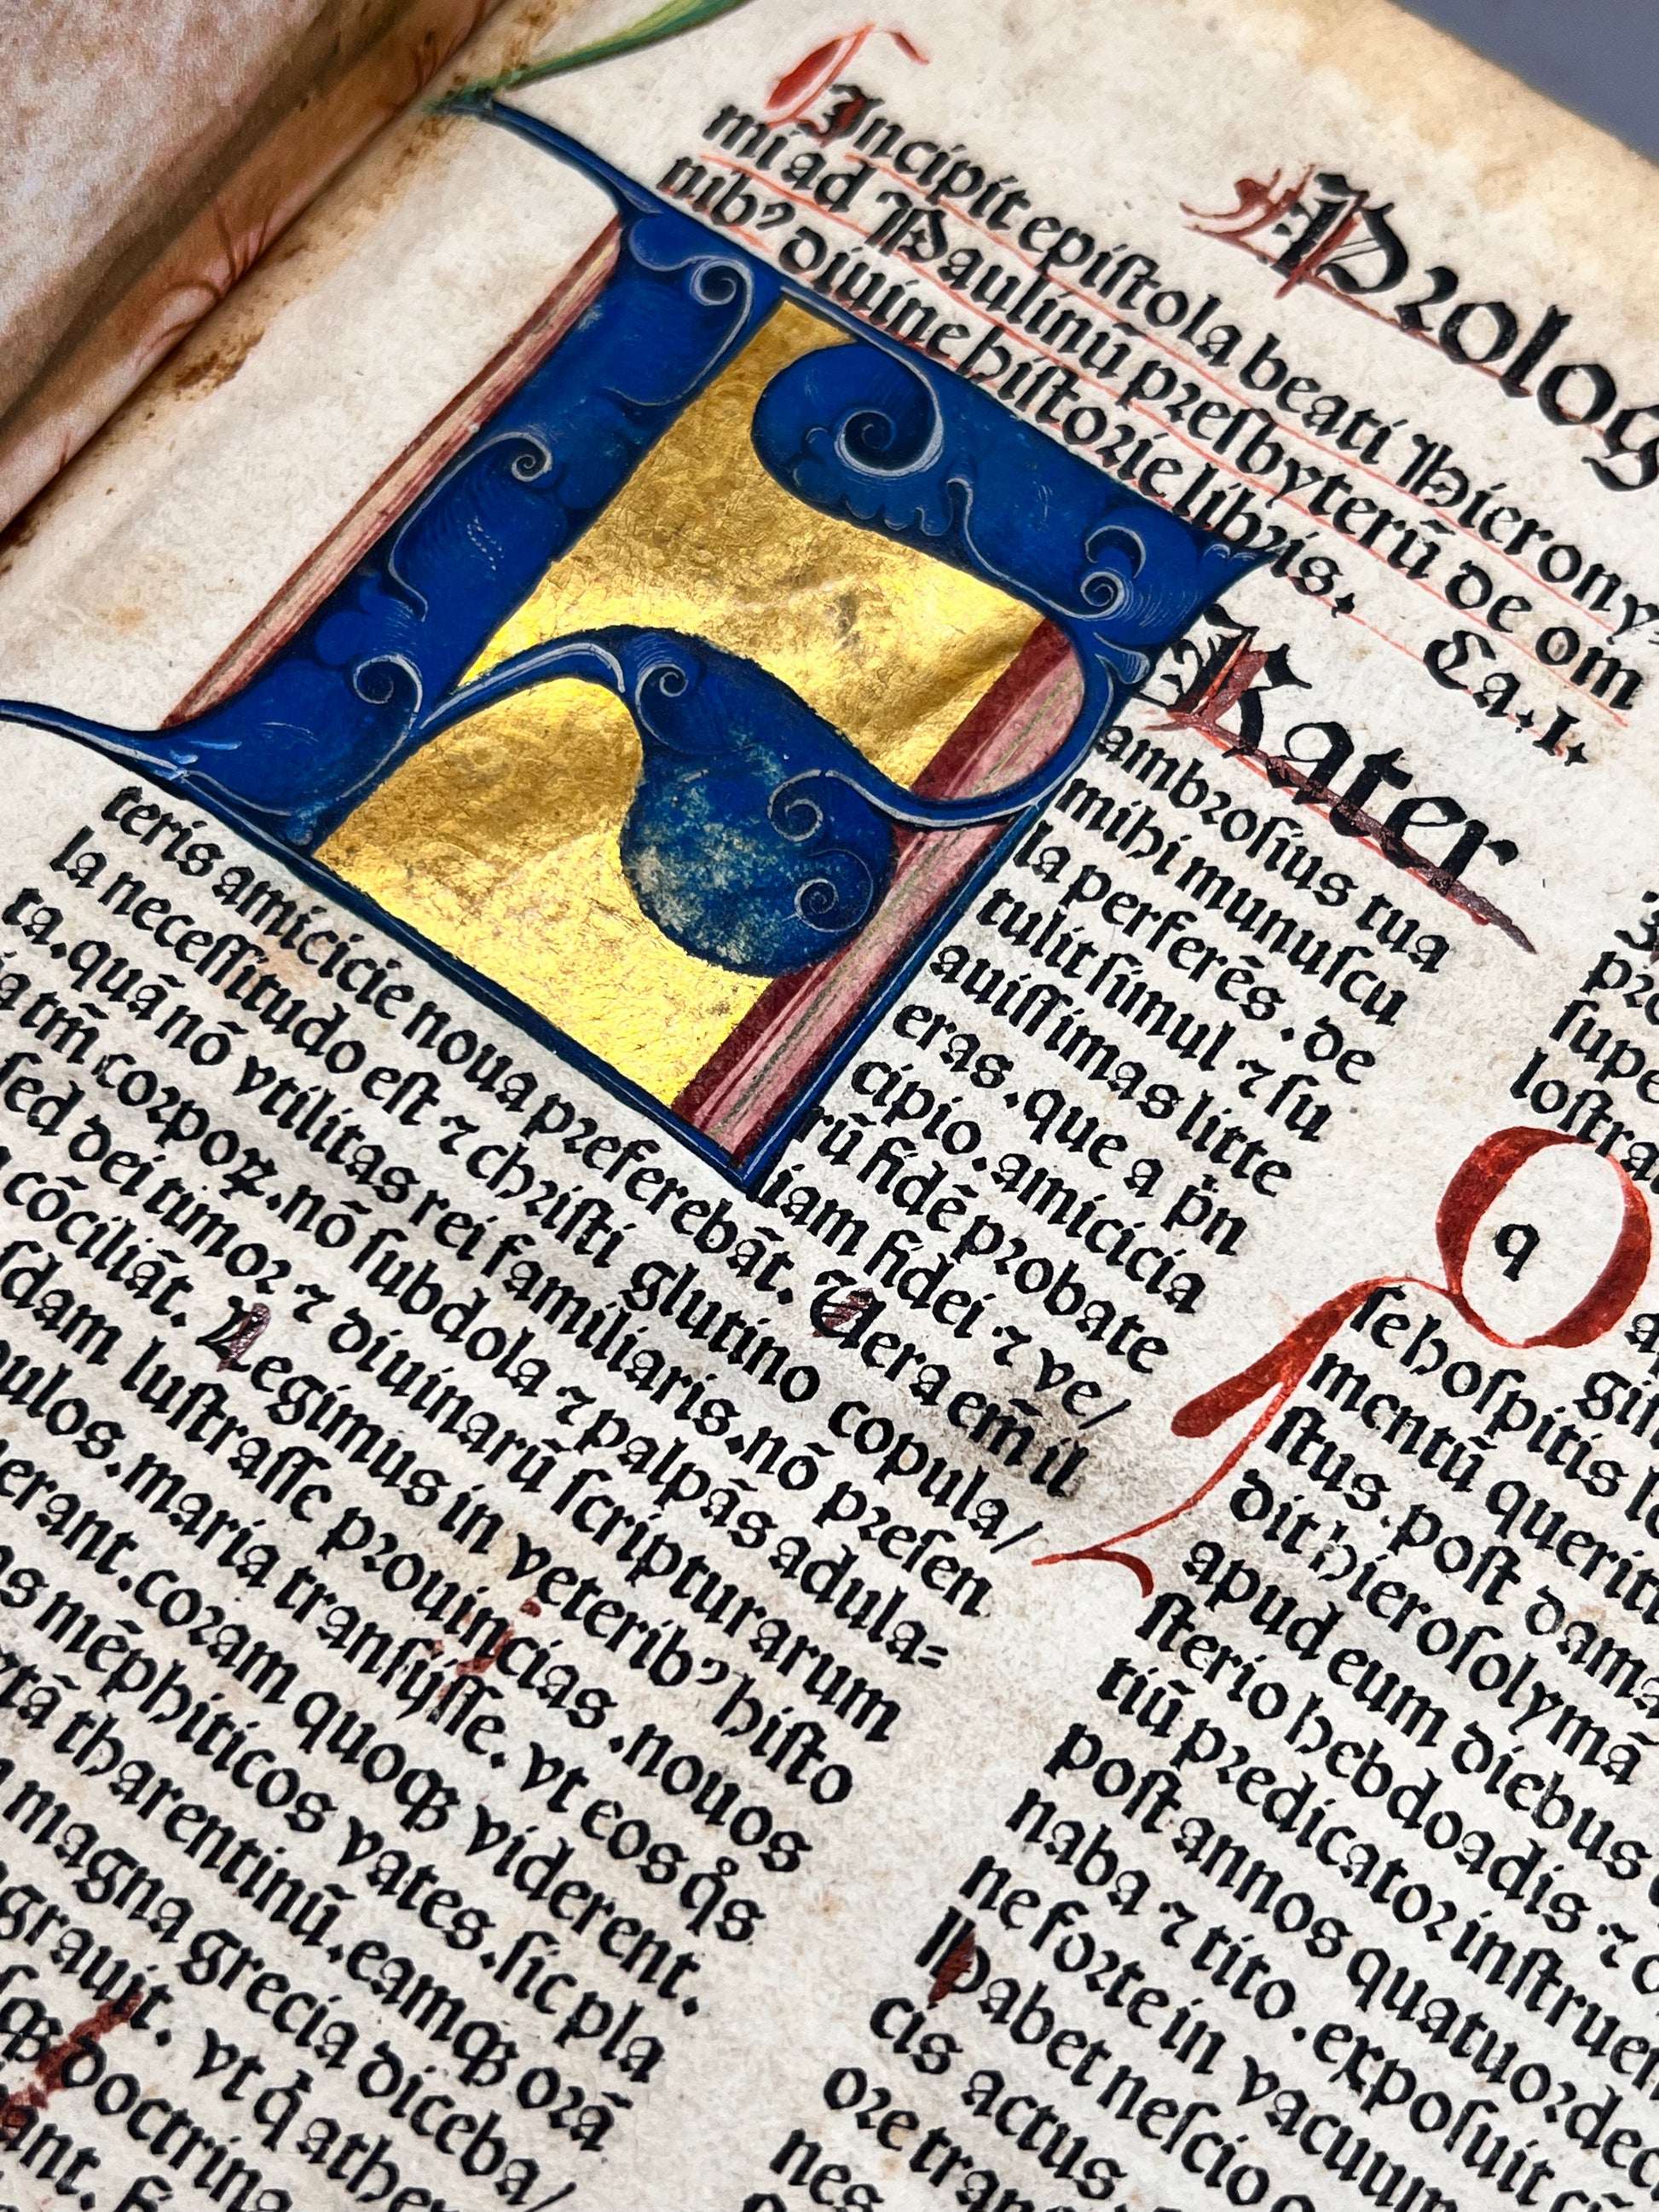 Prolog
Incipit epiſtola beati Hierony-
mi ad Paulinū preſbyterū de om
nibꝰ diuine hiſtorie libris. Ca.I.
F Rater
ambroſius tua
mihi munuſcu
la perferēs. de
tulit ſimul ⁊ ſu
auiſſimas litte
eras. que a p̄n
cipio. amicicia
rū fidē probate
iam fidei ⁊ ve/
teris amicicie noua preferebāt. Uera em̄ il
la neceſſitudo eſt ⁊ chriſti glutino copula/
ta. quā nō vtilitas rei familiaris. nō preſen
ia tm̄ corpoꝝ. nō ſubdola ⁊ palpās adula=
ſed dei timor ⁊ diuinarū ſcripturarum
cōciliāt. Legimus in veteribꝰ hiſto
ſdam luſtraſſe prouincias. nouos
pulos. maria tranſijſſe. vt eos q̊s
erant. coram quoqꝫ viderent.
mēphiticos vates. ſic pla
tā tharentinū. eamqꝫ orā
magna grecia diceba/
grauit. vt q̇ athe
ſqꝫ doctrina
ant.
pro
ſupe
loſtra
Q q
ſe hoſpitis
mentū querit
ſtus. poſt dama
dit hieroſolymā
apud eum diebus
ſterio hebdoadis ⁊
tiū predicator inſtruen
poſt annos quatuordec
naba ⁊ tito. expoſuit
ne forte in vacuum
Habet neſcio
cis actus.
ore tran
nes